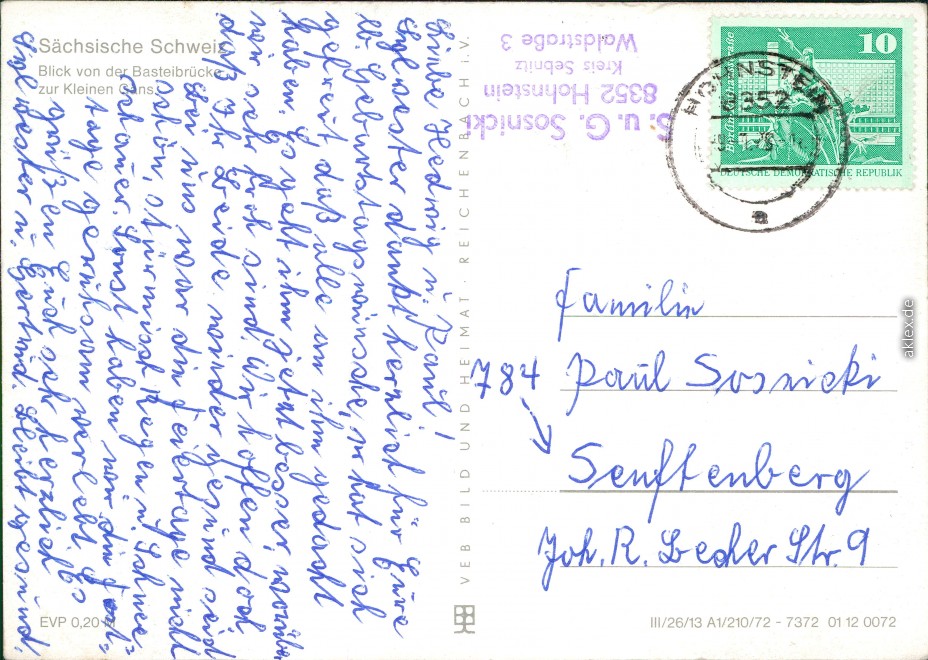 Sächsische Schweiz
Blick von der Basteibrücke
zur Kleinen Gans
Liebe Hedwig u. Paul!
Sylvester dankt herzlich für Eure
lb. Geburtstagswünsche, er hat sich
gefreut daß alle an ihn gedacht
haben. Es geht ihm jetzt besser, worüber
wir sehr froh sind. Wir hoffen doch
daß Ihr beide wieder gesund seid
Bei uns war die Feiertage nicht
schön, stürmisch Regen u. Schnee-
schauer. Sonst haben wir die Fest-
tage geruhsam verlebt. Es
grüßen Euch sehr herzlich
Sylvester u. Gertrud. Bleibt gesund.
EVP 0,20 M
VEB BILD UND HEIMAT · REICHENBACH i. V.
S. u. G. Sosnicki
8352 Hohnstein
Kreis Sebnitz
Waldstraße 3
10
DEUTSCHE DEMOKRATISCHE REPUBLIK
HOHNSTEIN
8352
a
Familie
784 Paul Sosnicki
Senftenberg
Joh. R. Becher Str. 9
III/26/13 A1/210/72 - 7372 01 12 0072
aklex.de